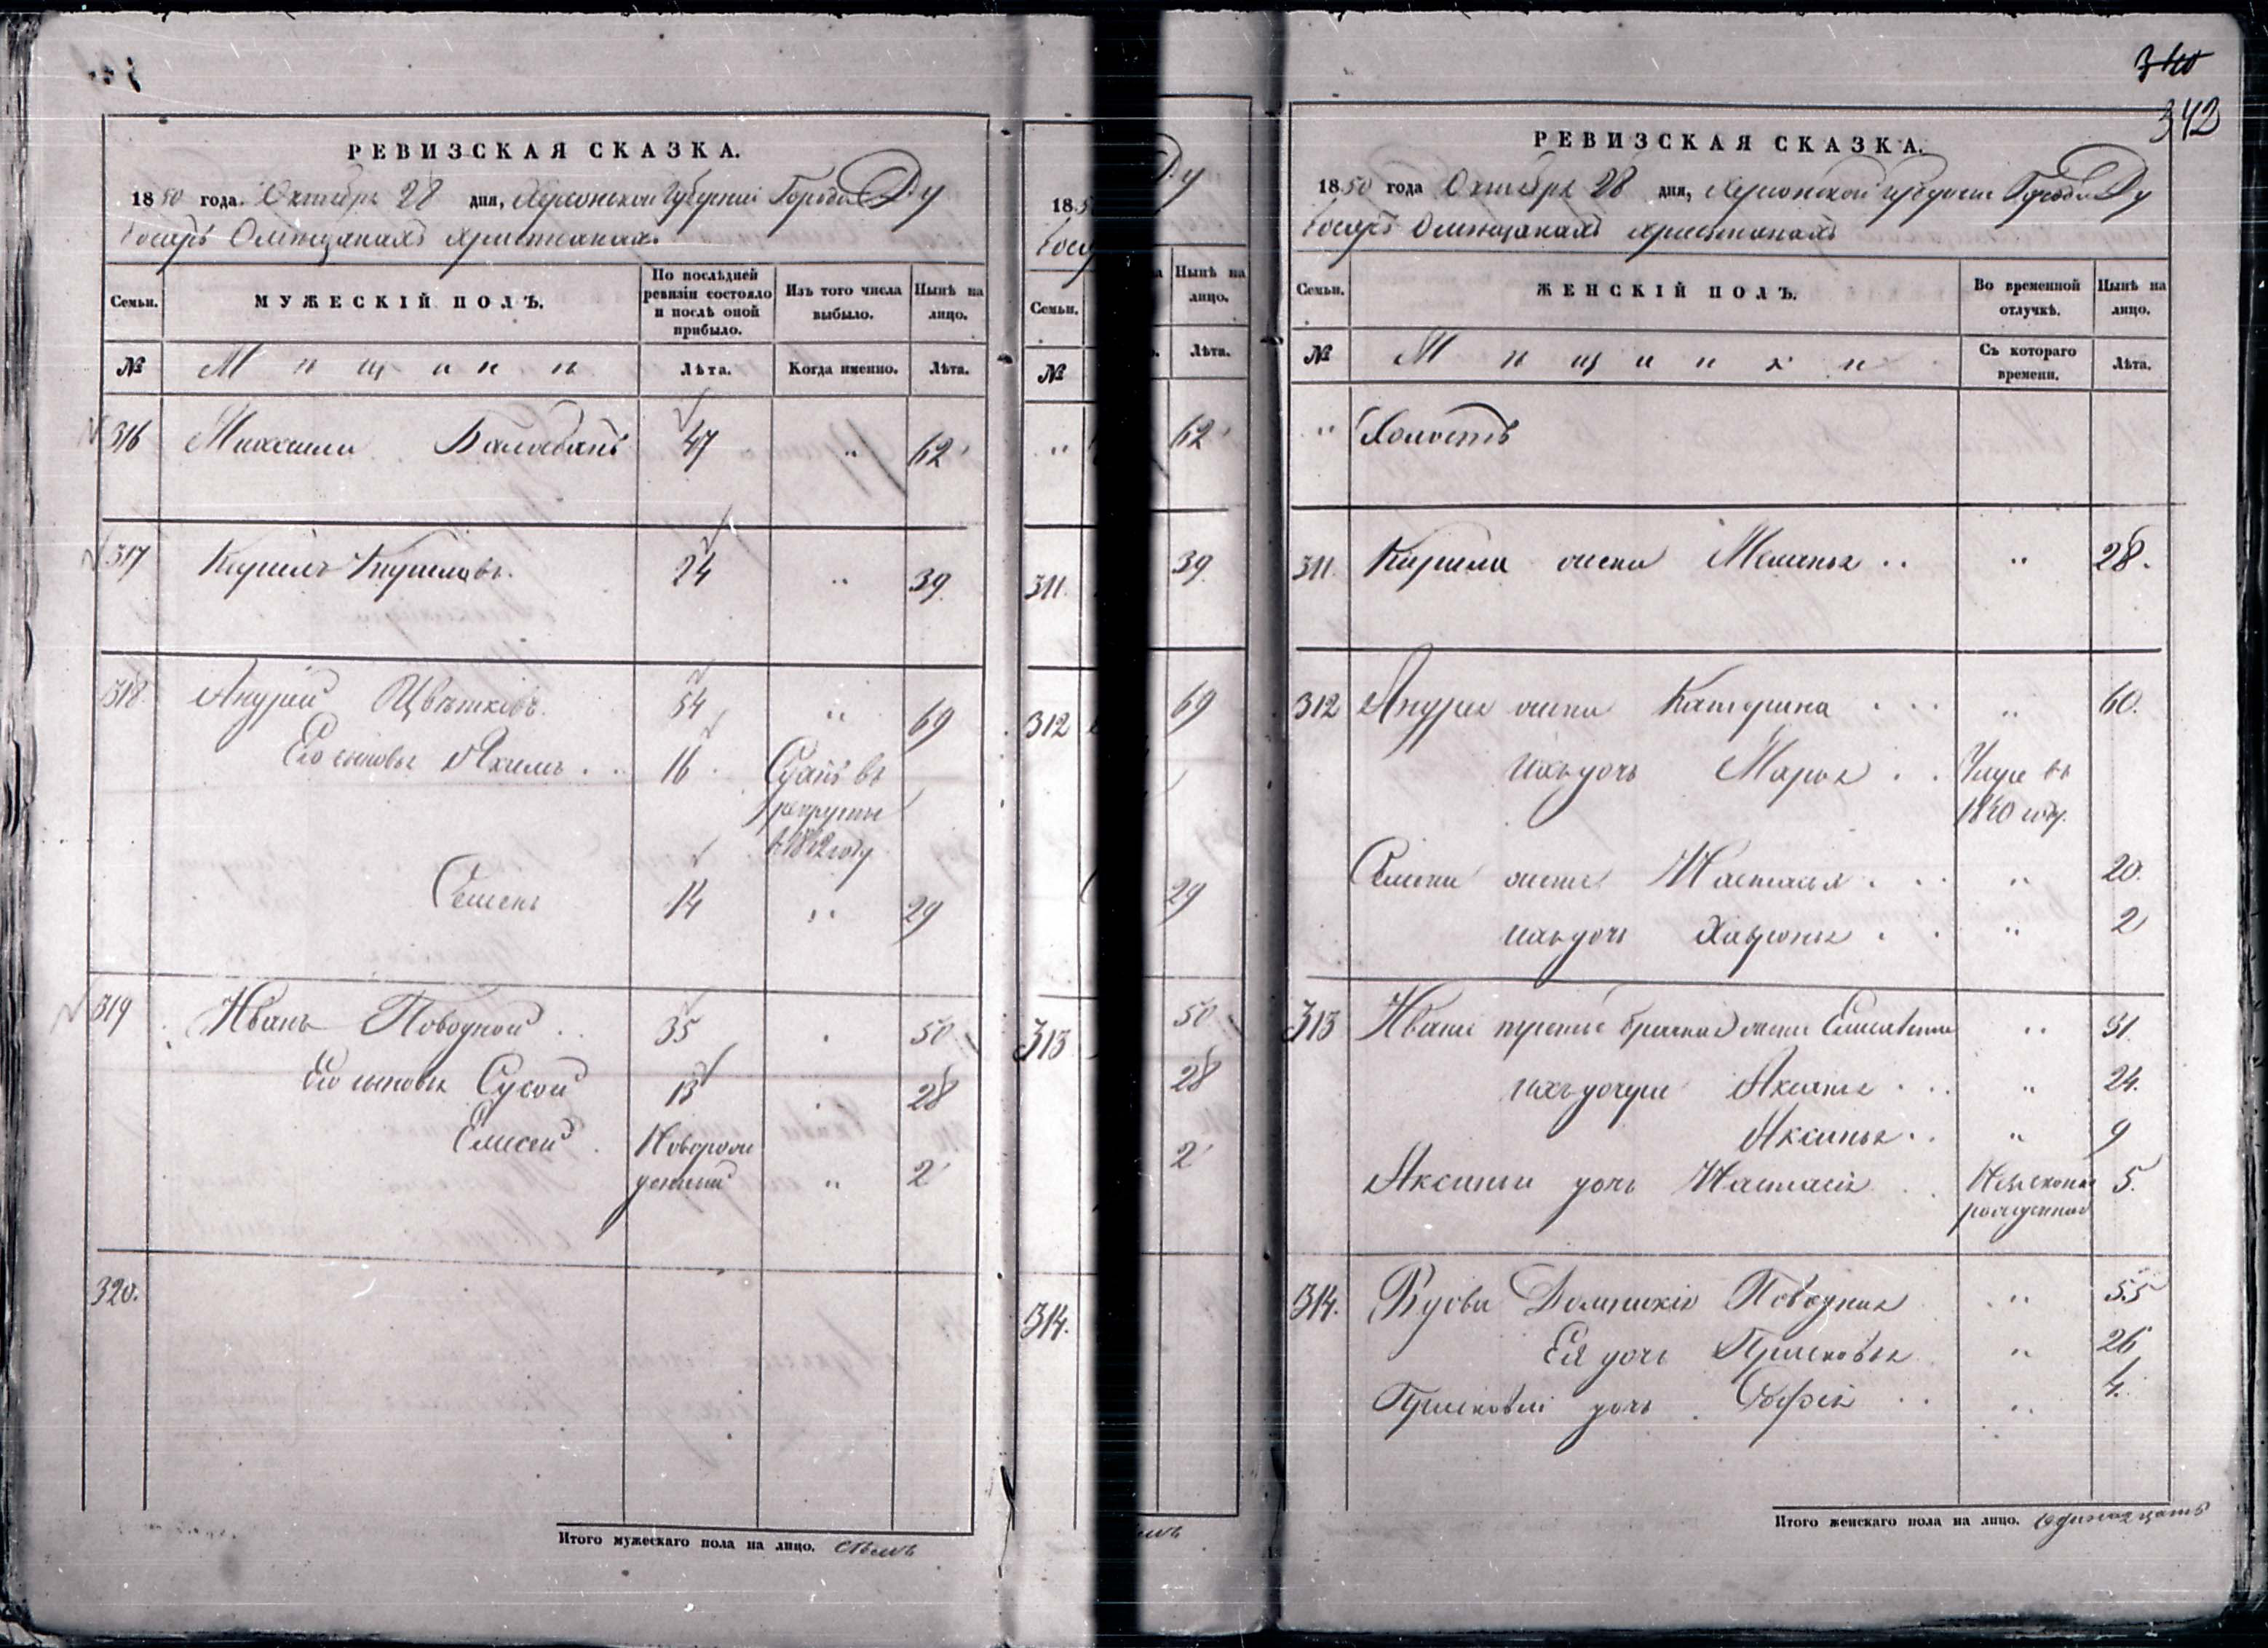 РЕВИЗСКАЯ СКАЗКА.
1850 года. Октября 28 дня, Херсонской Губернии Города Ду
боссаръ Омѣщанахъ християнахъ
Семьи.
МУЖЕСКІЙ ПОЛЪ.
По послѣдней ревизіи состояло и послѣ оной прибыло.
Изъ того числа выбыло.
Нынѣ на лицо.
№
Мѣщани
Лѣта.
Когда именно.
Лѣта.
316 Михаила Балабанъ 47 " 62
317 Кирилъ Кириловъ. 24 " 39
318 Андрей Цвѣтковъ 54 " 69
Его сыновья Яхимъ . . 16 . Сданъ въ
рекруты
в 1842 году
Семенъ 14 " 29
319 Иванъ Поводной . . 35 . 50
Его сыновья Сусой 13 . 28
Елисей . Новорож
денный " 2
320.
Итого мужескаго пола на лицо. семь
Ду
185
Семьи.
Нынѣ на лицо.
№
Лѣта.
" 62
311. 39
312 69
29
313 50
28
2
314.
340
342
РЕВИЗСКАЯ СКАЗКА.
1850 года Октября 28 дня, Херсонской губернии Города Ду
боссаръ Омѣщанахъ християнахъ
Семьи.
ЖЕНСКІЙ ПОЛЪ.
Во временной отлучкѣ.
Нынѣ на лицо.
№
Мѣщанки
Съ котораго времени.
Лѣта.
" Холостъ
311. Кирила жена Меланья . . " 28.
312 Андрея жена Катерина . . . " 60.
ихъ дочь Марья . . Умре въ
1840 году.
Семена жена Настасья . . . " 20.
ихъ дочь Хавронья . . " 2
313 Ивана третьебрачная жена Елисавета " 51.
ихъ дочери Аксинья . . . " 24.
Аксинья . . " 9
Аксиньи дочь Настасія . . Незаконно
рожденная 5.
314. Вдова Домникія Поводная " 55
Ея дочь Присковья " 26
Присковьи дочь . Софія . . " 4.
Итого женскаго пола на лицо. одинадцать